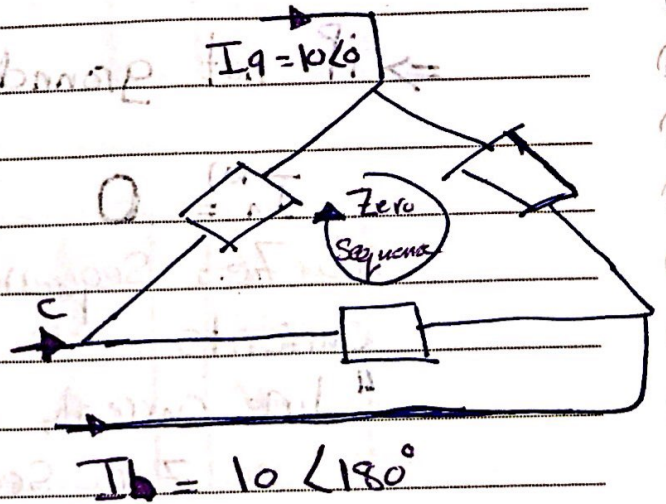 Ia = 10<0
Zero
Sequence
C
Ib = 10 <180°